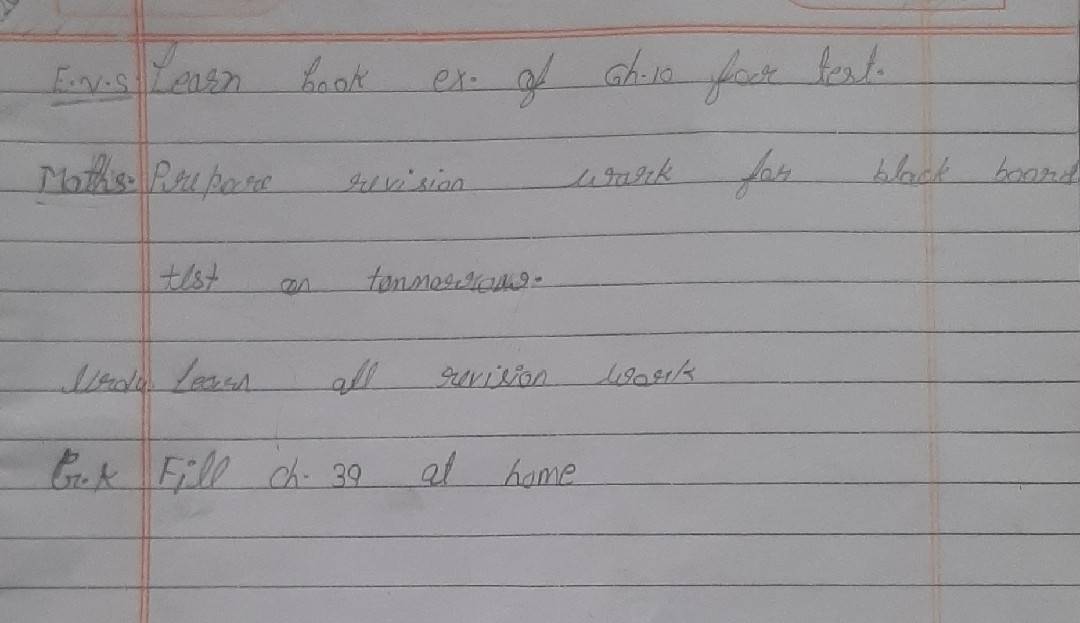 E.v.s Learn book ex. of Ch.10 for test.
Maths. Prepare revision work for black board
test on tommorrow.
Urdu. Learn all revision work
G.K Fill ch. 39 at home